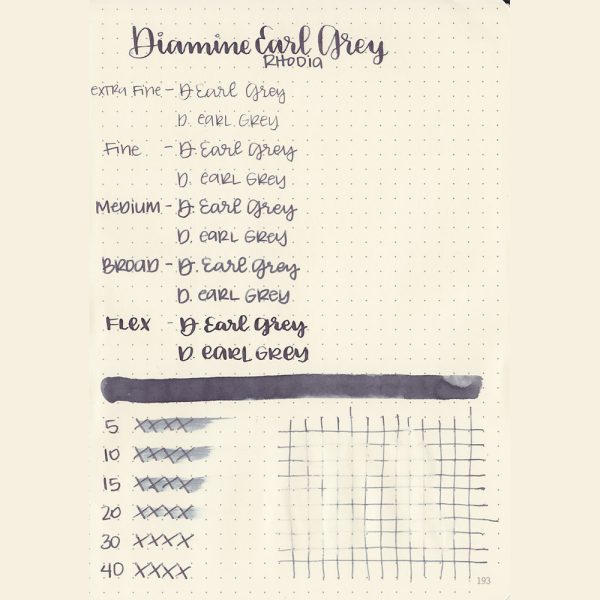 Diamine Earl Grey
Rhodia
Extra Fine - D. Earl Grey
D. Earl Grey
Fine - D. Earl Grey
D. Earl Grey
Medium - D. Earl Grey
D. Earl Grey
Broad - D. Earl Grey
D. Earl Grey
Flex - D. Earl Grey
D. Earl Grey
5 XXXX
10 XXXX
15 XXXX
20 XXXX
30 XXXX
40 XXXX
193